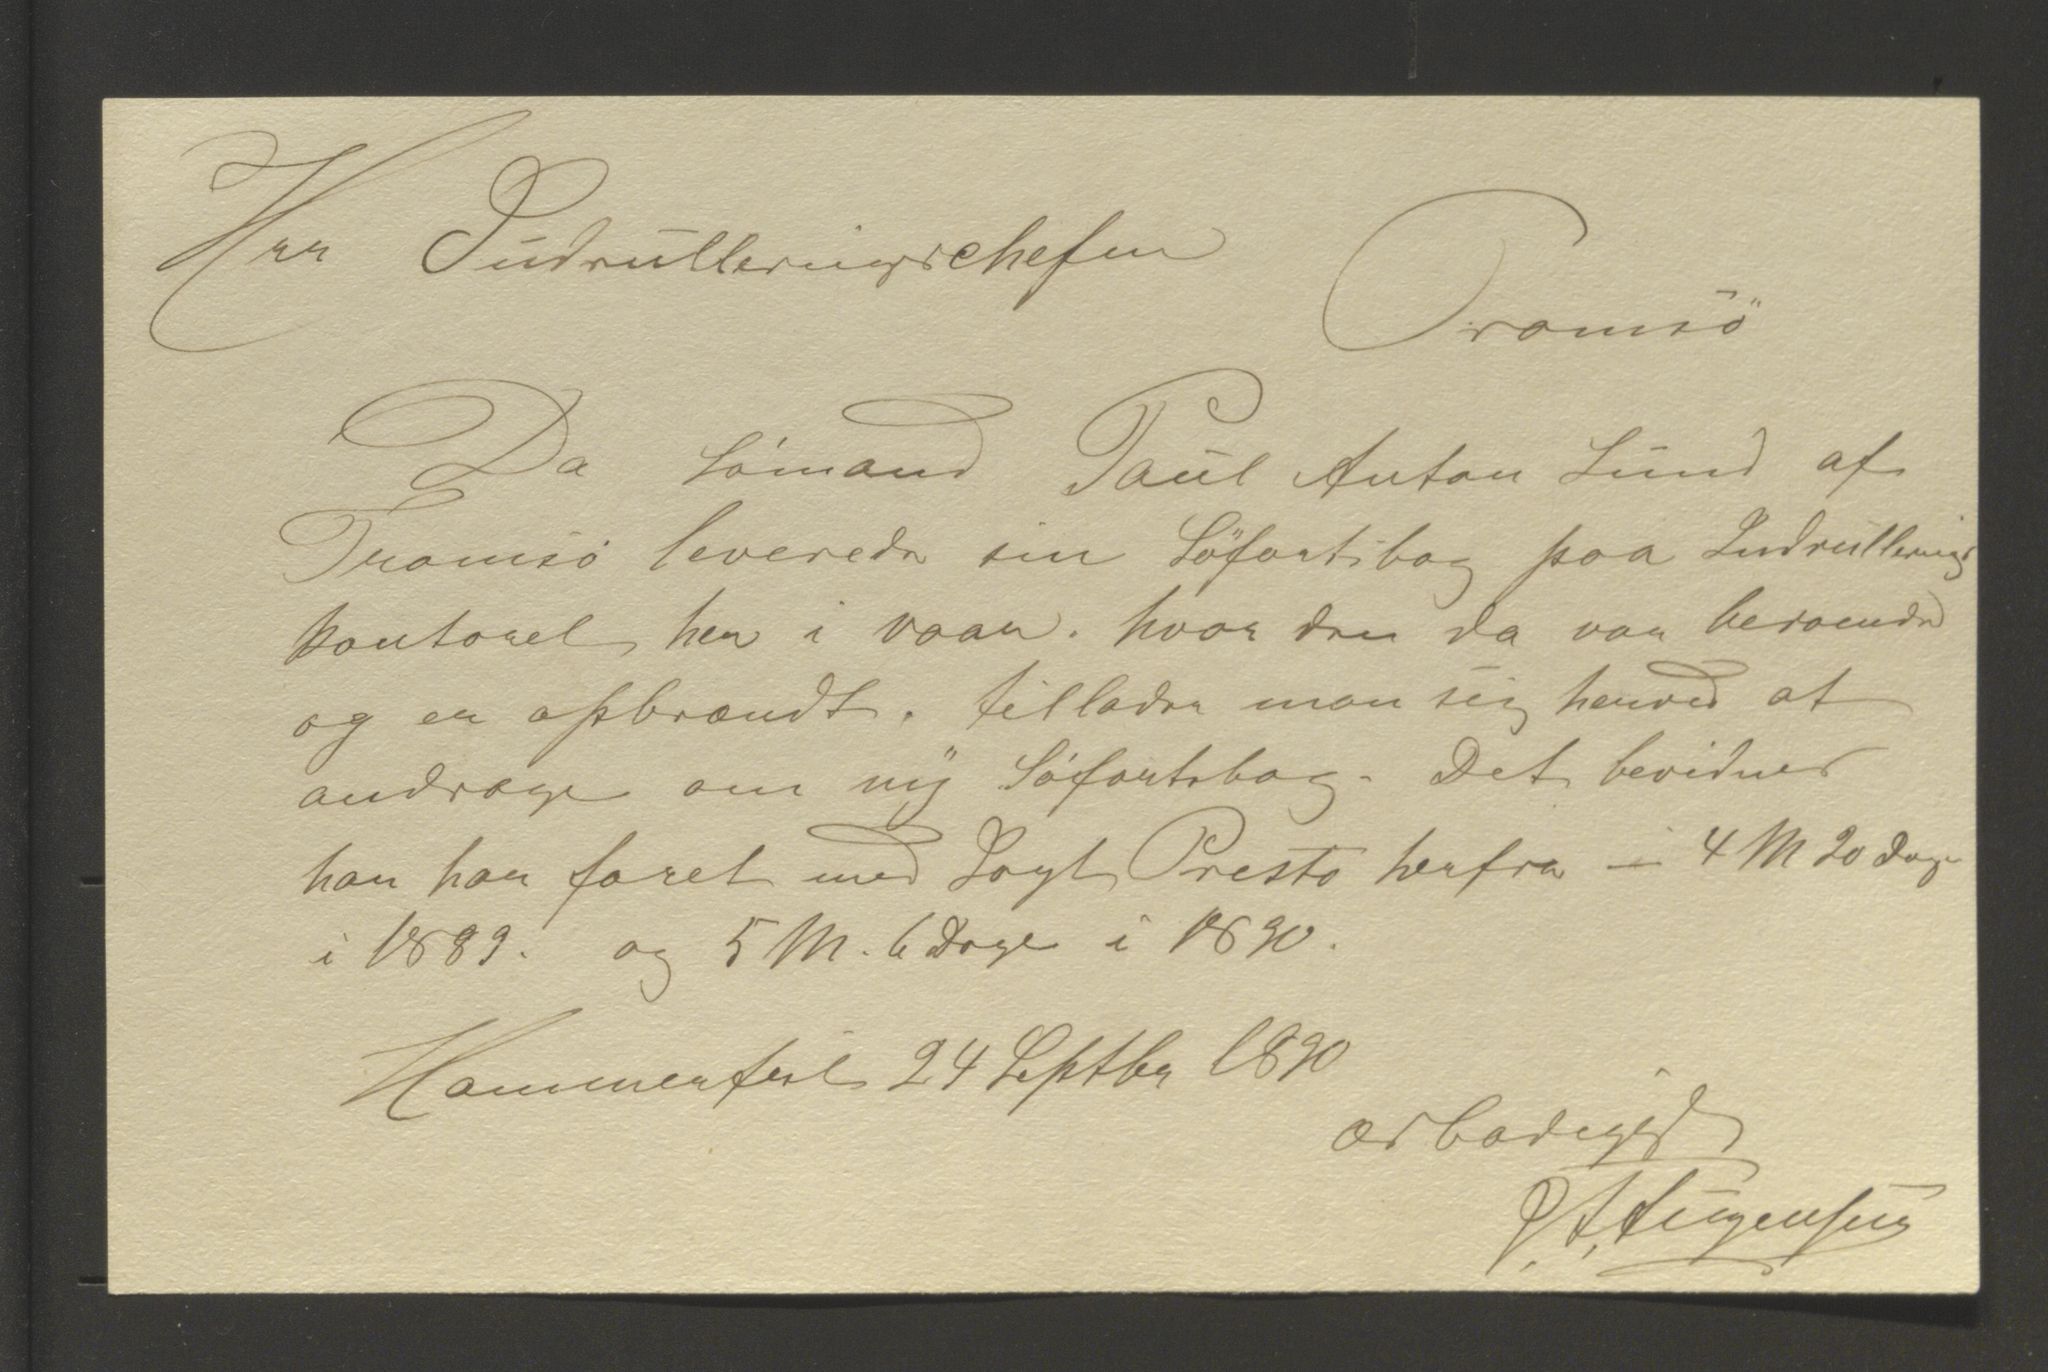 Herr Indrulleringschefen
Tromsö
Da Sömand Paul Anton Lund af
Tromsö leverede sin Söfartsbog paa Indrullerings
kontoret her i vaar. hvor den da var beroende
og er opbrændt. tillader man sig herved at
andrage om ny Söfartsbog. Det bevidnes
han har faret med Jagt Presto herfra i 4 M 20 Dage
i 1889. og 5 M. 6 Dage i 1890.
Hammerfest 24 Septbr 1890
ærbødigst